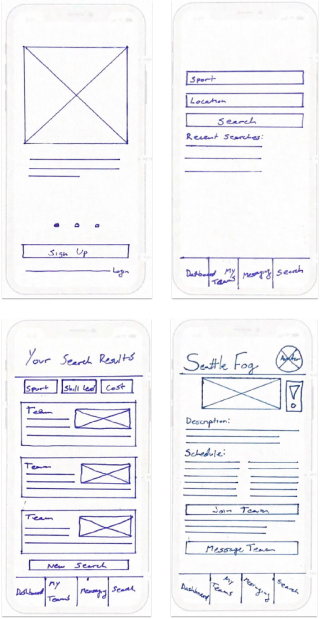 Sign Up
Login
Sport
Location
Search
Recent Searches:
Dashboard My Teams Messaging Search
Your Search Results
Sport Skill Level Cost
Team
Team
Team
New Search
Dashboard My Teams Messaging Search
Seattle Fog
Description:
Schedule:
Join Team
Message Team
Dashboard My Teams Messaging Search